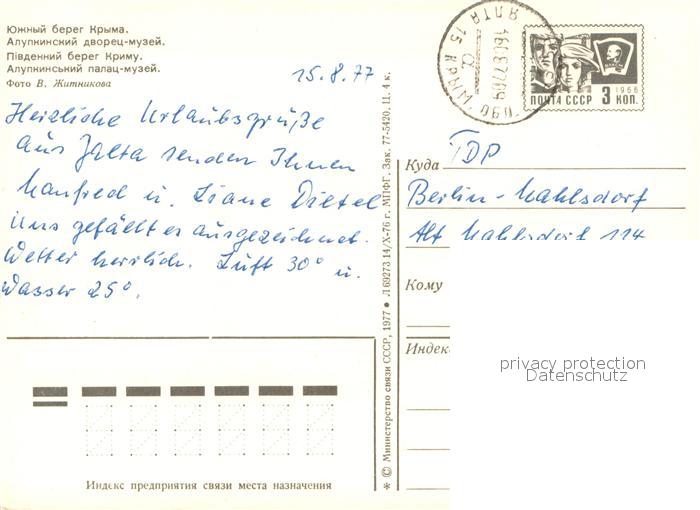 Южный берег Крыма.
Алупкинский дворец-музей.
Південний берег Криму.
Алупкинський палац-музей.
Фото В. Житникова
15.8.77
Herzliche Urlaubsgrüße
aus Jalta senden Ihnen
Manfred u. Liane Dietel
Uns gefällt es ausgezeichnet.
Wetter herrlich. Luft 30° u.
Wasser 25°.
Индекс предприятия связи места назначения
* © Министерство связи СССР, 1977 ● Л 69273 14/X-76 г. МПФГ. Зак. 77-5420. Ц. 4 к.
ЯЛТА
КРЫМ. ОБЛ.
ПОЧТА СССР 3 КОП.
1966
Куда TDP
Berlin-Mahlsdorf
Alt Mahlsdorf 114
Кому
Индек
privacy protection
Datenschutz